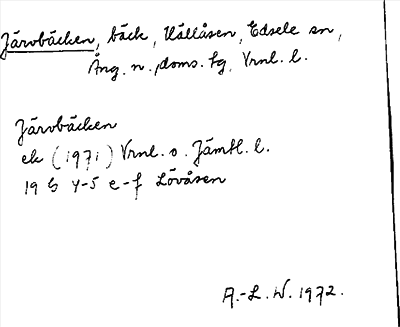 Järvbäcken, bäck, Hållåsen, Edsele sn,
Ång. n. doms. tg, Vrnl. l.
Järvbäcken
ek (1971) Vrnl. o. Jämtl. l.
19 G 4-5 e-f Lövåsen
A.-L. W. 1972.